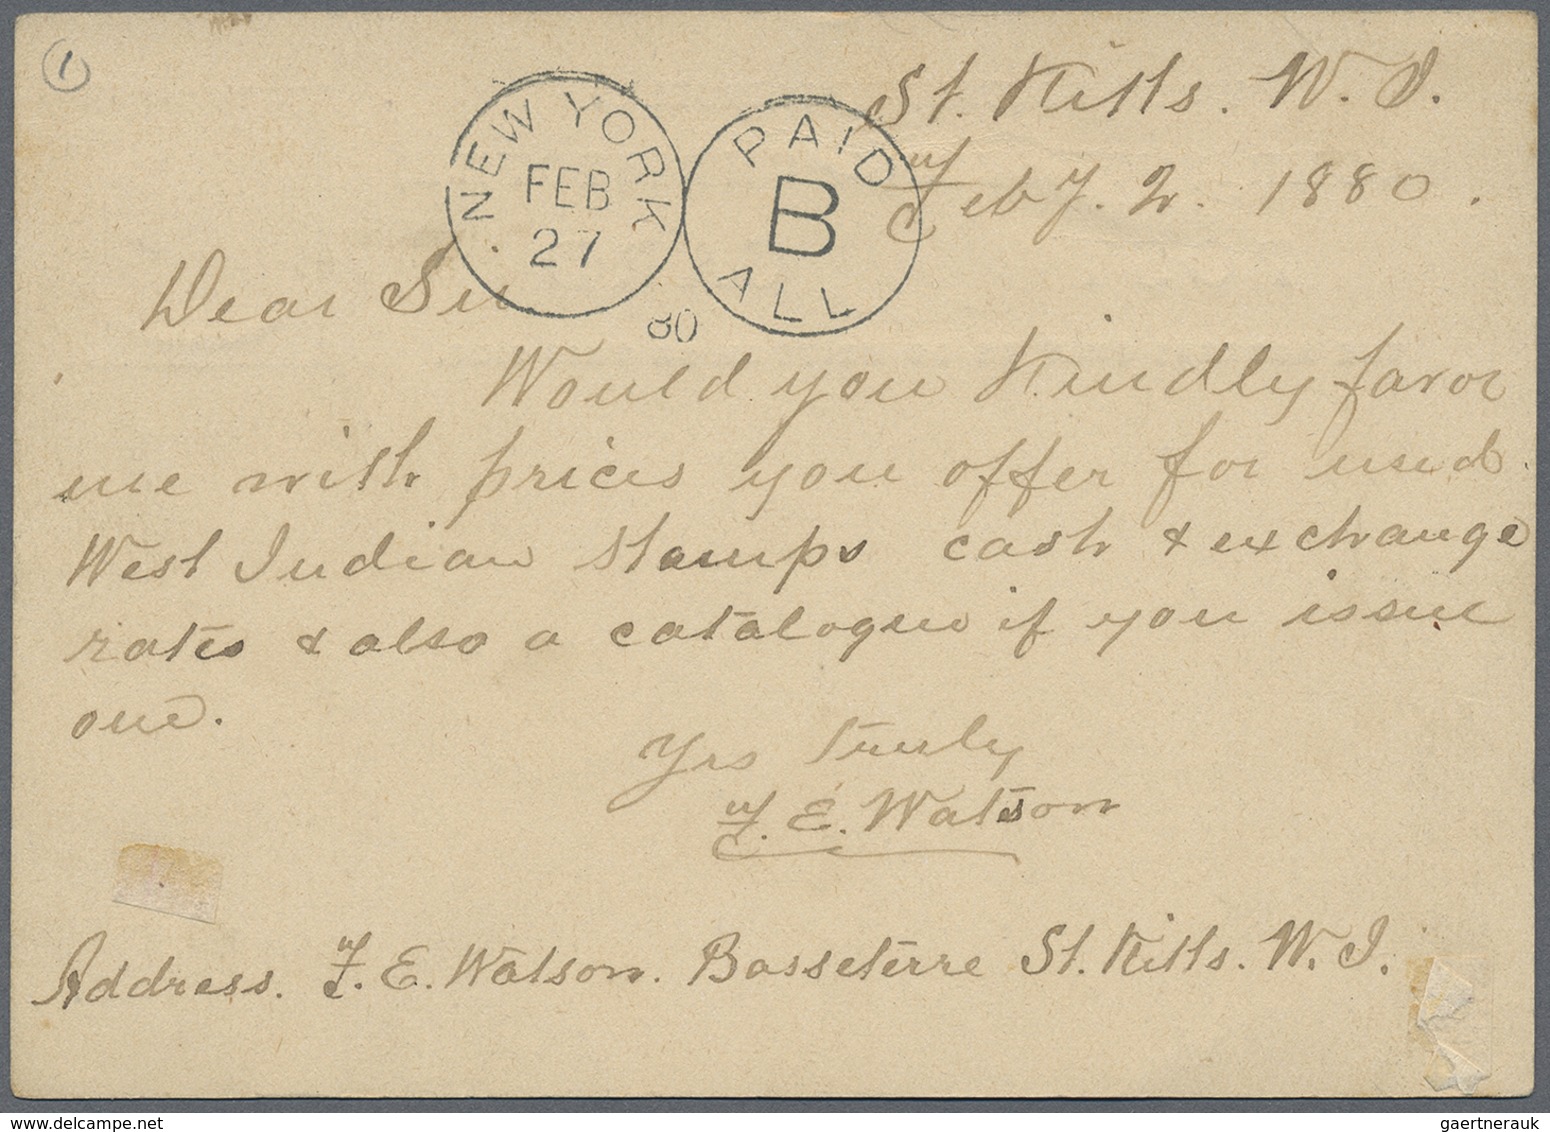 1
St. Kitts. W. I.
Feby. 2. 1880.
NEW YORK
FEB
27
80
PAID
B
ALL
Dear Sir
Would you Kindly favor
me with prices you offer for used
West Indian Stamps cash & exchange
rates & also a catalogue if you issue
one.
Yrs Truly
F. E. Watson
Address. F. E. Watson. Basseterre St. Kitts. W. I.
gaertnerauk / delcampe.net